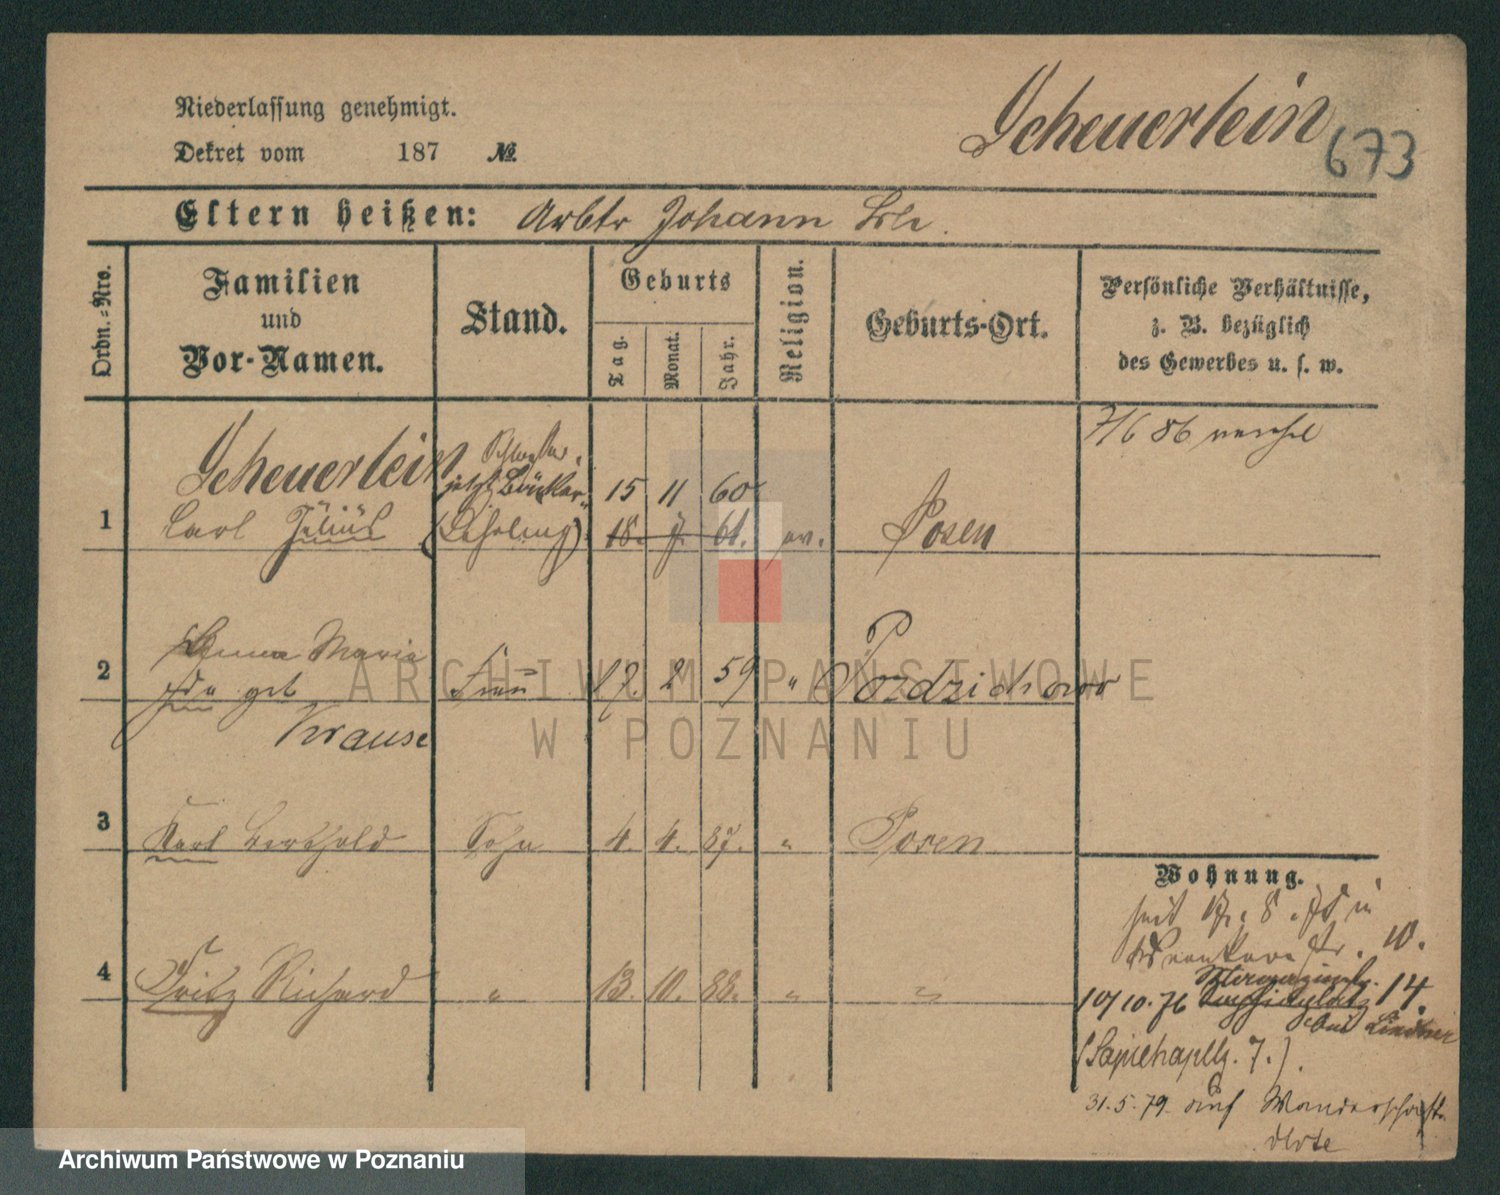 Niederlassung genehmigt.
Dekret vom 187 №
Scheuerlein
673
Eltern heißen: Arbtr Johann
Ordn.-Nro.
Familien
und
Vor-Namen.
Stand.
Geburts
Tag.
Monat.
Jahr.
Religion.
Geburts-Ort.
Persönliche Verhältnisse,
z. B. bezüglich
des Gewerbes u. s. w.
7/6 86
Scheuerlein
jetzt
15 11 60
1
Carl Julius
(Lehrling)
18. 7. 61.
ev.
Posen
2
Anna Maria
Ida geb
Krause
Frau
17. 2 59
"
3
Karl Berthold
Sohn
4. 4. 87.
"
Posen
4
Fritz Richard
"
13. 10. 88.
"
"
Wohnung.
seit 17. 8. in
10.
10/10. 76
14.
bei Lindner
(Sapiehaplz. 7.)
31. 5. 79. auf Wanderschaft
ARCHIWUM PAŃSTWOWE
W POZNANIU
Archiwum Państwowe w Poznaniu